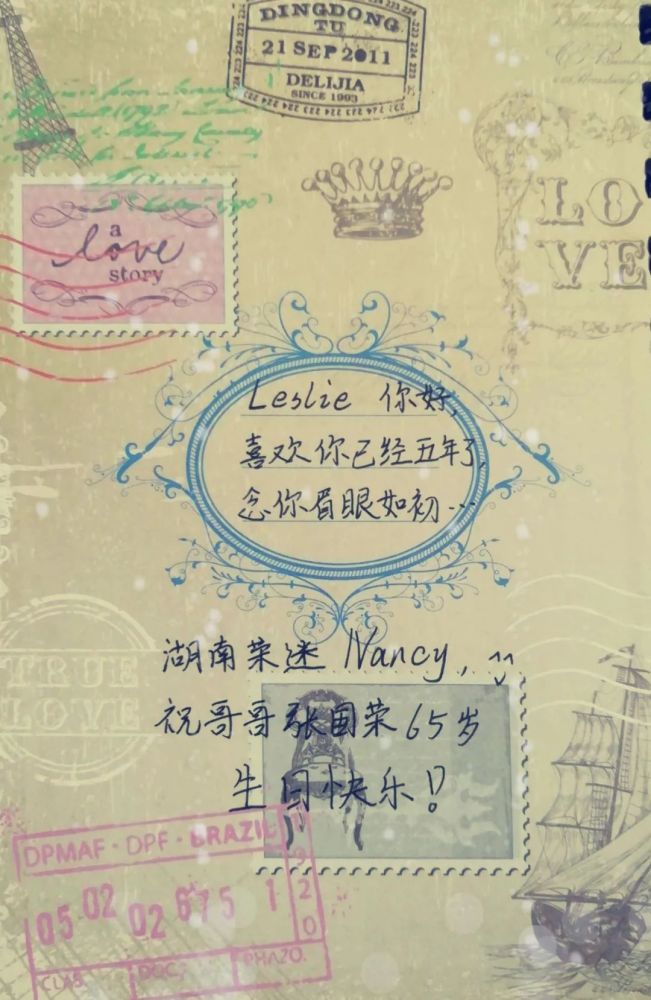 DINGDONG
TU
21 SEP 2011
DELIJIA
SINCE 1993
a
love
story
LO
VE
Leslie 你好,
喜欢你已经五年了,
念你眉眼如初…
TRUE
LOVE
湖南荣迷 Nancy,
祝哥哥张国荣65岁
生日快乐!
DPMAF · DPF · BRAZIL
1920
05 02 02 675 1
CLAS.
DOC.
PHAZO.